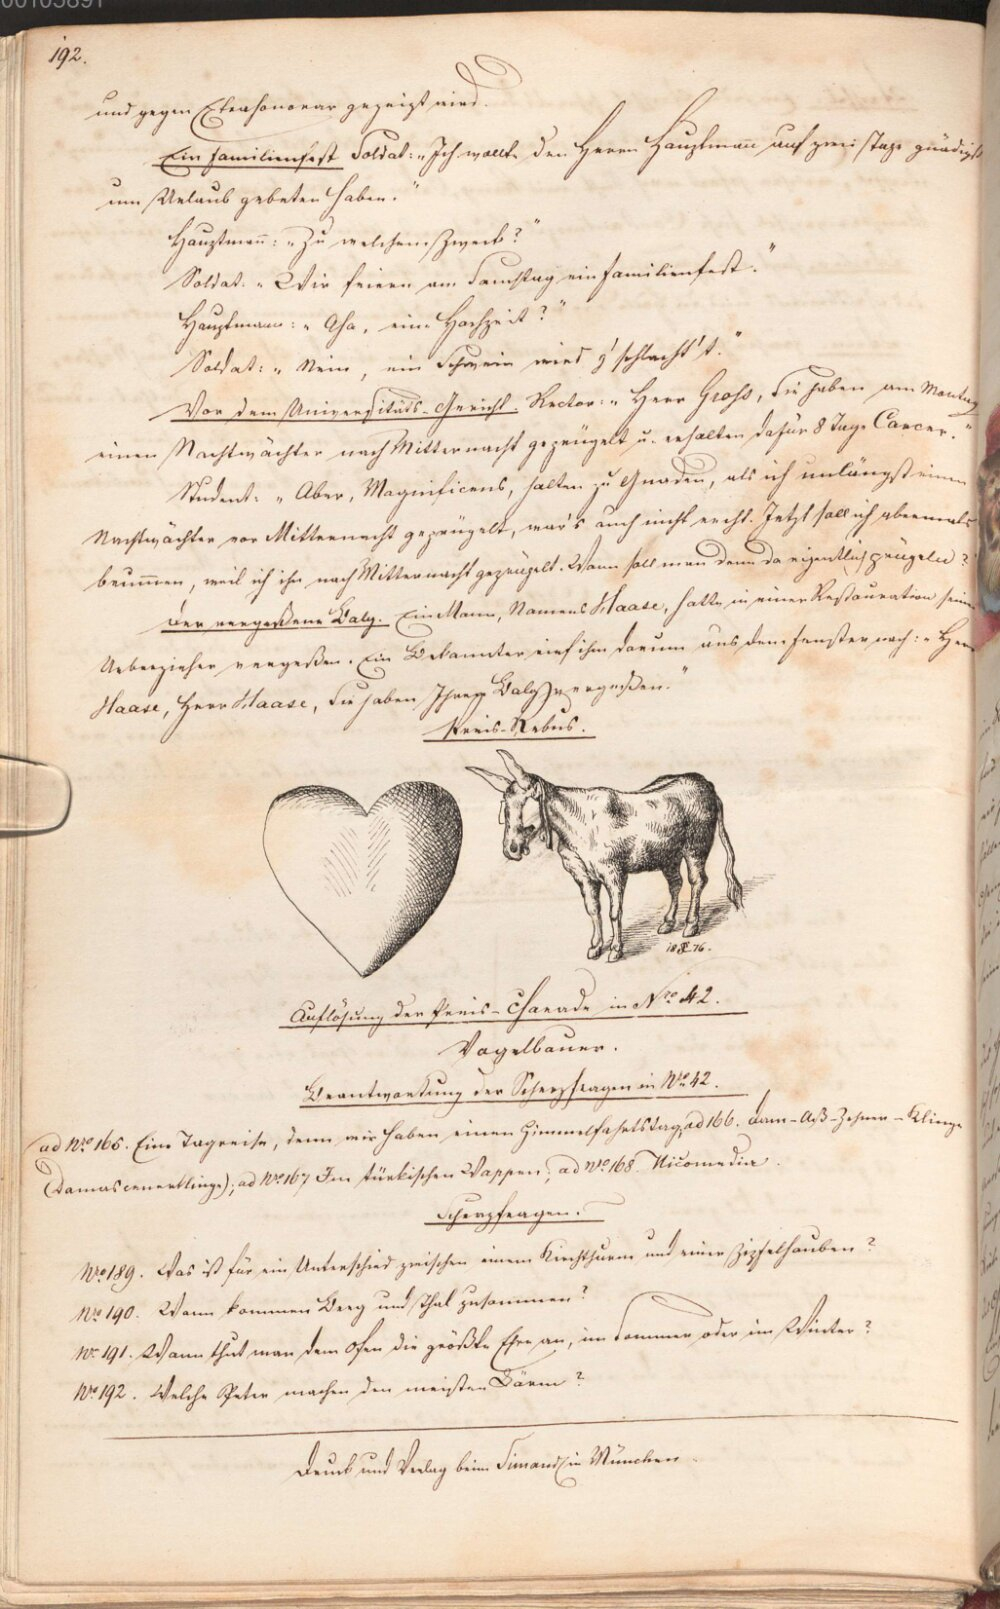 00103891
192.
und gegen Extrahonorar gezeigt wird.
Ein Familienfest Soldat: „Ich wollte den Herrn Hauptmann auf zwei Tage gnädigst
um Urlaub gebeten haben."
Hauptmann: „Zu welchem Zweck?"
Soldat: „Wir feiern am Samstag ein Familienfest."
Hauptmann: „Aha, eine Hochzeit?"
Soldat: „Nein, ein Schwein wird g'schlacht't."
Vor dem Universitäts-Gericht. Rector: „Herr Groß, Sie haben am Montag
einen Nachtwächter nach Mitternacht geprügelt u. erhalten dafür 8 Tage Carcer."
Student: „Aber, Magnificens, halten zu Gnaden, als ich unlängst einen
Nachtwächter vor Mitternacht geprügelt, war's auch nicht recht. Jetzt soll ich abermals
brummen, weil ich ihn nach Mitternacht geprügelt. Wann soll man denn da eigentlich prügeln?
Der vergeßene Balg. Ein Mann, Namens Haase, hatte in einer Restauration seinen
Ueberzieher vergeßen. Ein Bekannter rief ihm darum aus dem Fenster nach: „Herr
Haase, Herr Haase, Sie haben Ihren Balg vergeßen."
Preis-Rebus.
18 76.
Auflösung der Preis-Charade in Nro 42.
Vogelbauer.
Beantwortung der Scherzfragen in Nro 42.
ad Nro 165. Eine Tagreise, denn wir haben einen Himmelfahrtstag, ad 166. Dam-Aß-Zehner-Klinge
(Damascenerklinge); ad Nro 167 Im türkischen Wappen; ad Nro 168. Nicomedia.
Scherzfragen.
Nro 189. Was ist für ein Unterschied zwischen einem Kirchthurm und einer Zipfelhauben?
Nro 190. Wann kommen Berg und Thal zusammen?
Nro 191. Wann thut man dem Ofen die größte Ehre an, im Sommer oder im Winter?
Nro 192. Welche Peter machen den meisten Lärm?
Druck und Verlag beim Simandl in München.